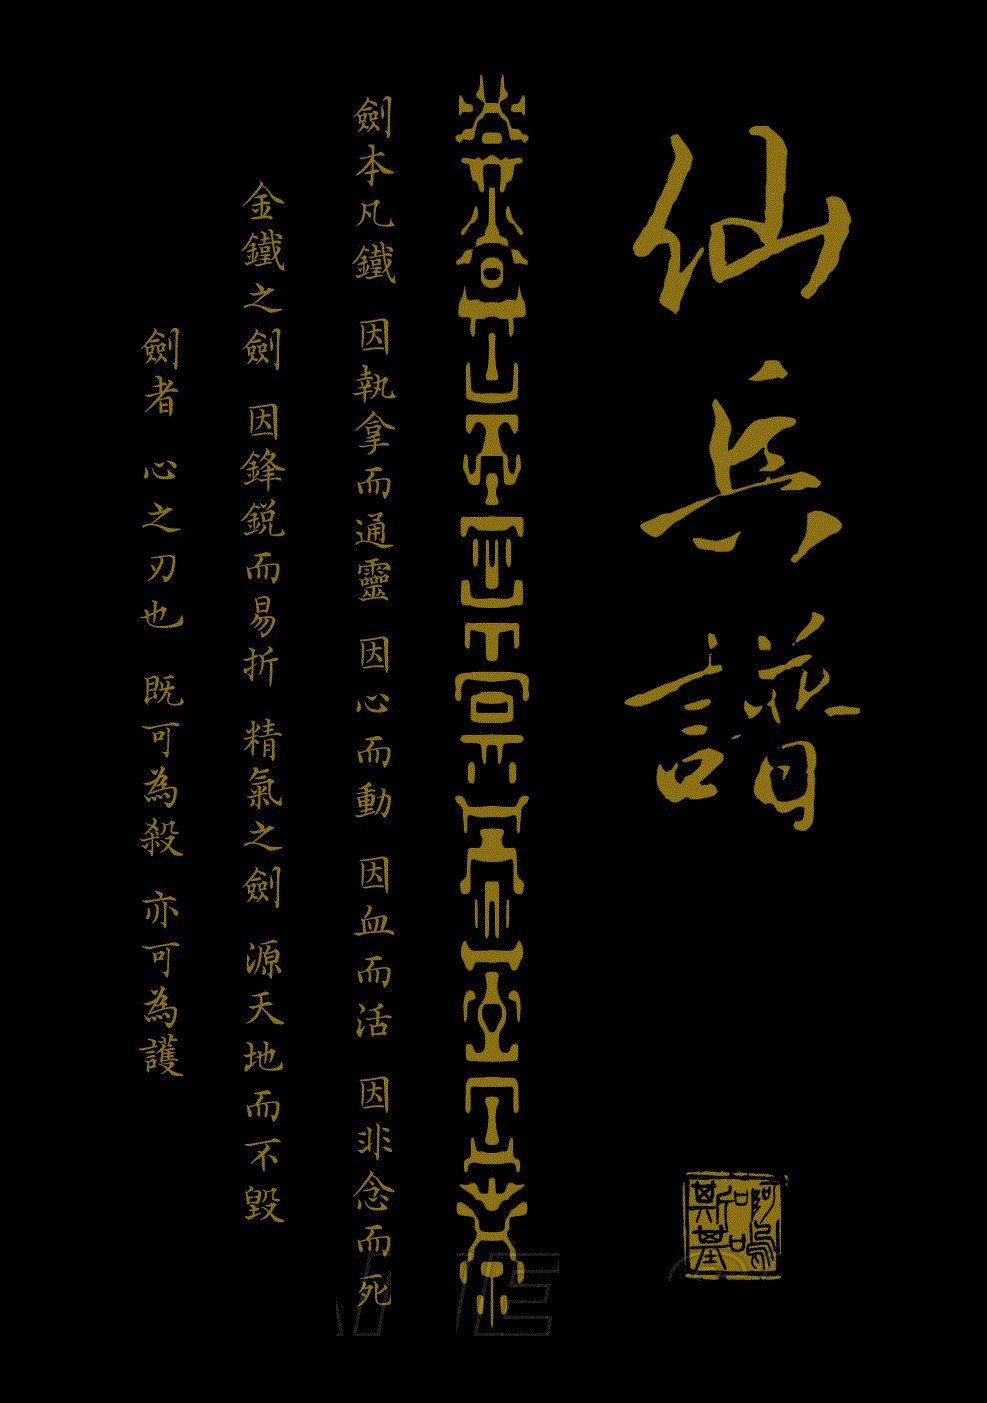 仙兵譜
劍本凡鐵 因執拿而通靈 因心而動 因血而活 因非念而死
金鐵之劍 因鋒鋭而易折 精氣之劍 源天地而不毀
劍者 心之刃也 既可為殺 亦可為護